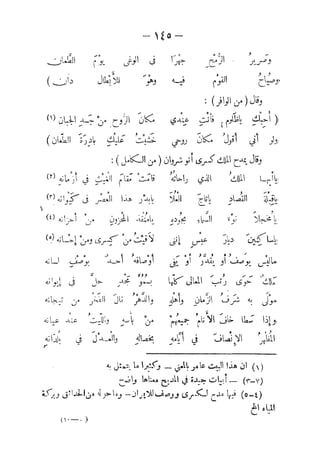 — ١٤٥ —
وصرير الرمح جهرا في الوغى يوم الطعان
وصياح القوم فيه وهو للأبطال دان )
وقال ( من الوافر ) :
( أحبك ياظلوم فأنت عندي مكان الروح من جسد الجبان (١)
ولو أني أقول مكان روحي خشيت عليك بادرة الطعان )
وقال يمدح الملك كسرى أنو شروان ( من الكامل ) :
ياأيها الملك الذي راحاته قامت مقام الغيث في أزمانه (٢)
ياقبلة القصاد ياتاج العلا يابدر هذا العصر في كيوانه (٣)
يامخجلاً نوء السماء بجوده يامنقذ المحزون من أحزانه (٤)
ياساكنين ديار عبس إنني لاقيت من كسرى ومن إحسانه (٥)
ماليس يوصف أو يقدر أو يفي أوصافه أحد بوصف لسانه
ملك حوى رتب المعالي كلها بسمو مجد حل في إيوانه
مولى به شرف الزمان وأهله والدهر نال الفخر من تيجانه
وإذا سطا خاف الأنام جميعهم من بأسه والليث عند عيانه
المظهر الإنصاف في أيامه بخصاله والعدل في بلدانه
(١) ان هذا البيت عامر بالمعنى — وكثيرا ما يتمثل به
(٢—٣) — أبيات جيدة في المديح معناها واضح
(٤—٥) فيها مدح لكسرى ووصف للايوان — وماحوله من الحدائق وبركة
المياه الخ
( ١٠ — )